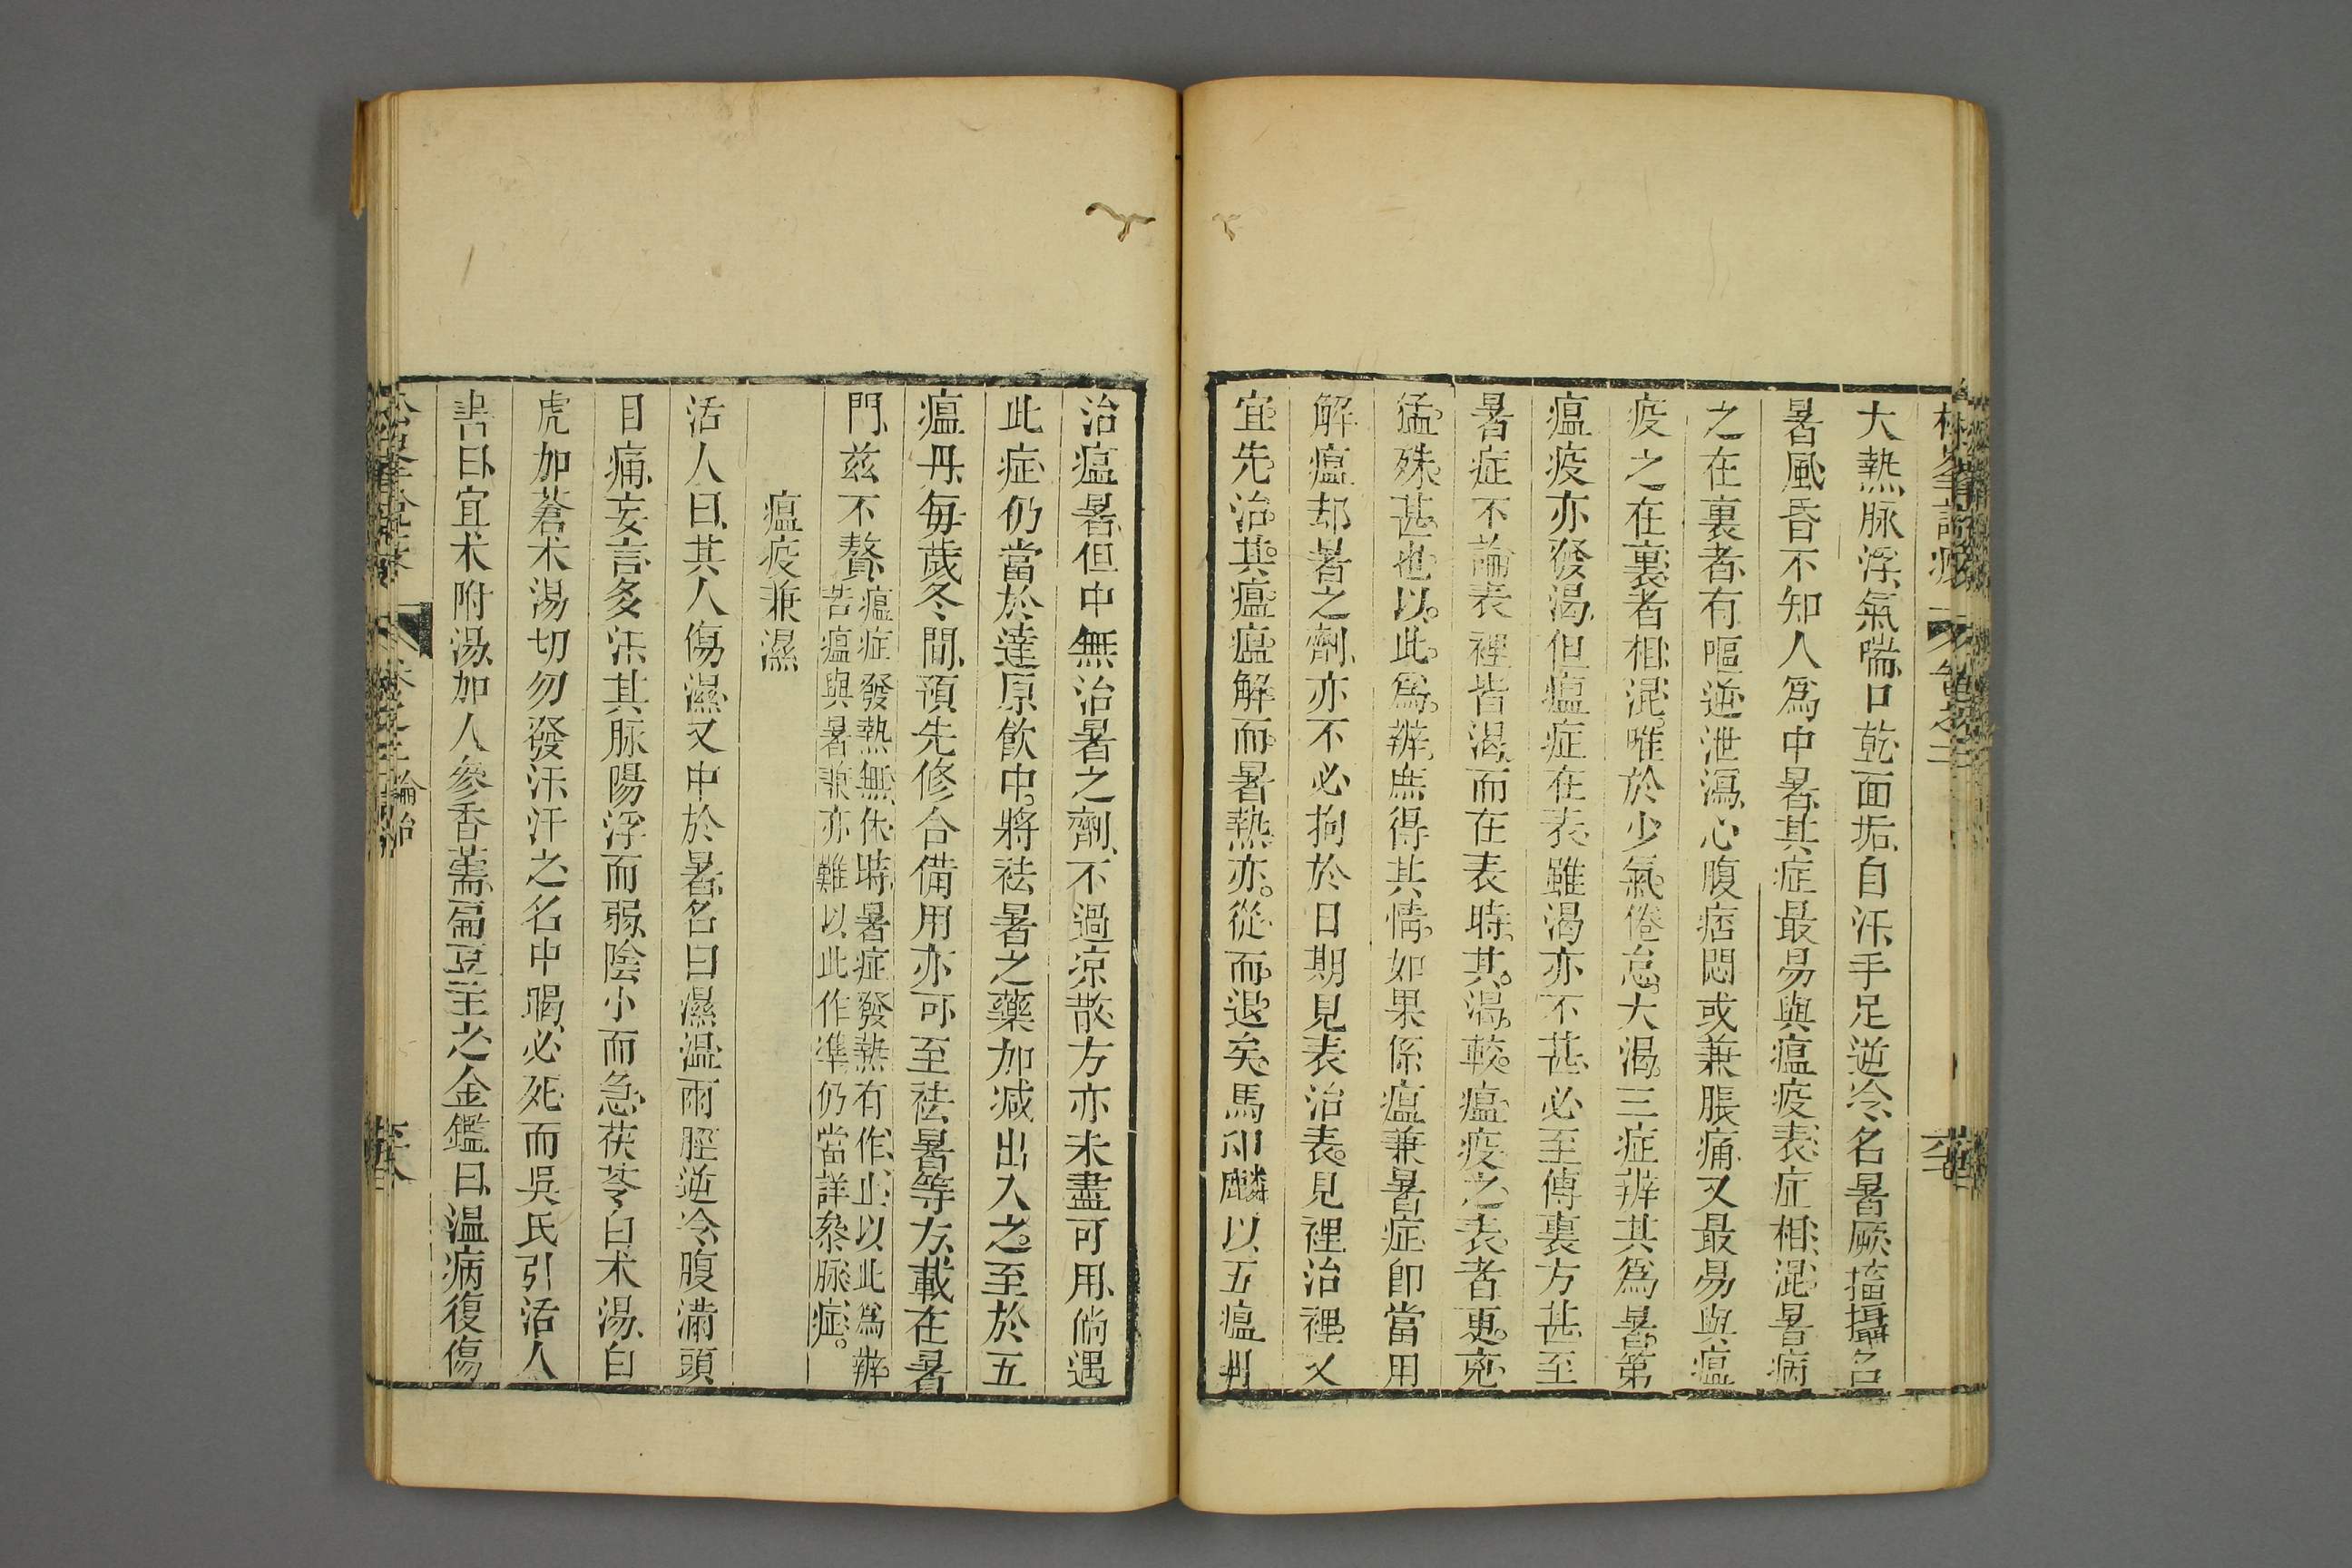 大熱脉浮氣喘口乾面垢自汗手足逆冷名暑厥搐搦名
暑風昏不知人爲中暑其症最易與瘟疫表症相混暑病
之在裏者有嘔逆泄瀉心腹痞悶或兼脹痛又最易與瘟
疫之在裏者相混唯於少氣倦怠大渴三症辨其爲暑第
瘟疫亦發渴但瘟症在表雖渴亦不甚必至傳裏方甚至
暑症不論表裡皆渴而在表時其渴較瘟疫之表者更兇
猛殊甚也以此爲辨庶得其情如果係瘟兼暑症卽當用
解瘟却暑之劑亦不必拘於日期見表治表見裡治裡又
宜先治其瘟瘟解而暑熱亦從而退矣馬印麟以五瘟丹
治瘟暑但中無治暑之劑不過凉散方亦未盡可用倘遇
此症仍當於達原飲中將祛暑之藥加減出入之至於五
瘟丹毎歲冬間預先修合備用亦可至祛暑等方載在暑
門兹不贅瘟症發熱無休時暑症發熱有作止以此爲辨
若瘟與暑兼亦難以此作準仍當詳叅脉症
瘟疫兼濕
活人曰其人傷濕又中於暑名曰濕温兩脛逆冷腹滿頭
目痛妄言多汗其脉陽浮而弱陰小而急茯苓白术湯白
虎加蒼术湯切勿發汗汗之名中暍必死而吳氏引活人
書曰宜术附湯加人參香薷扁豆主之金鑑曰温病復傷